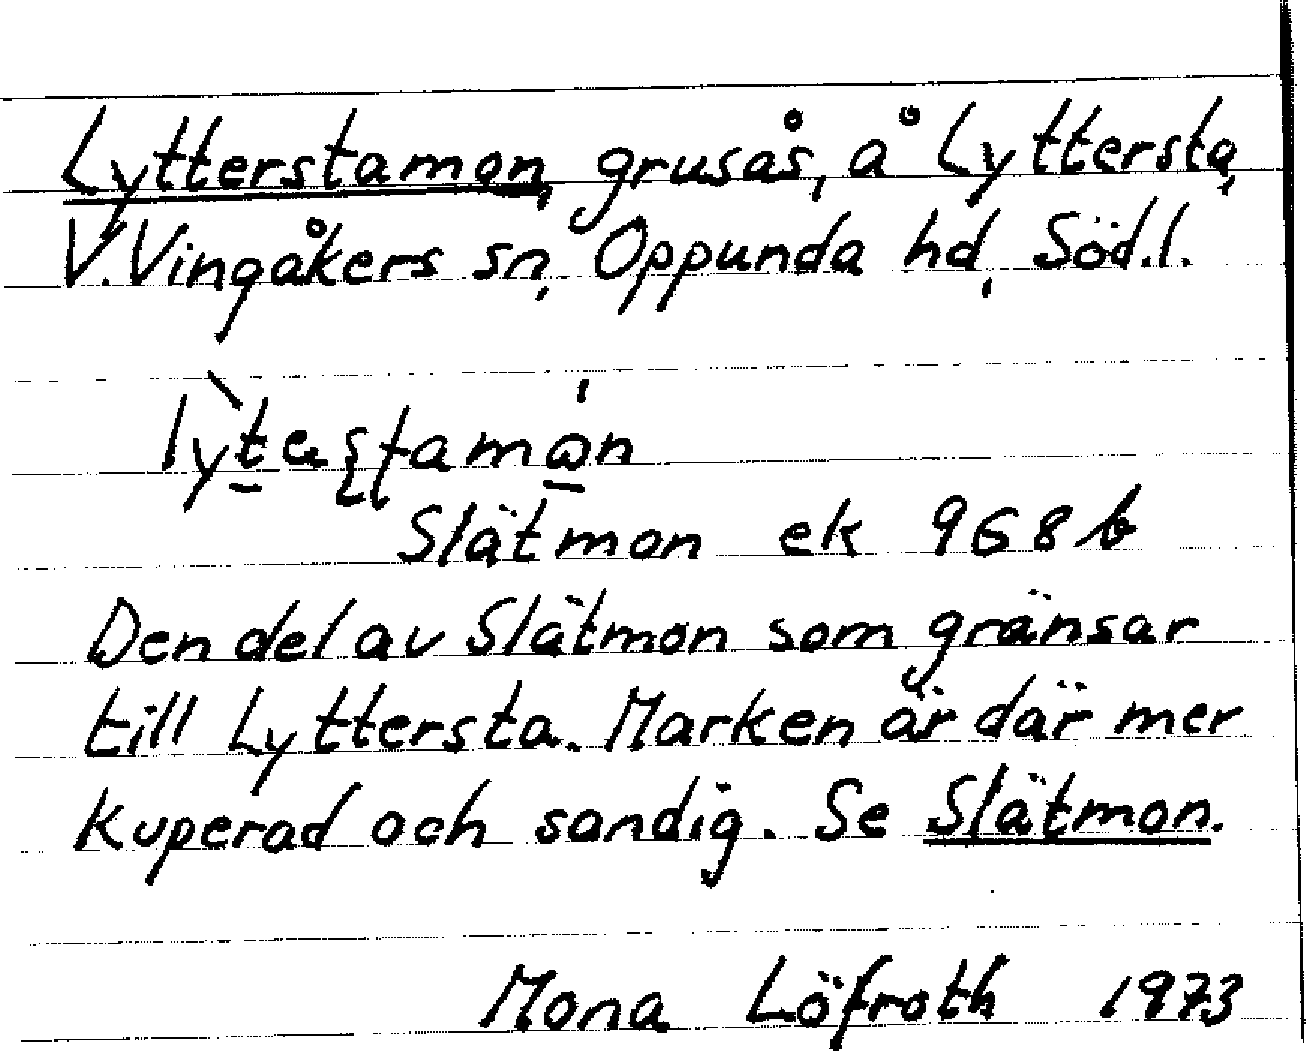 Lytterstamon, grusås, å Lyttersta,
V. Vingåkers sn, Oppunda hd, Söd.l.
Slätmon ek 968 b
Den del av Slätmon som gränsar
till Lyttersta. Marken är där mer
kuperad och sandig. Se Slätmon.
Mona Löfroth 1973